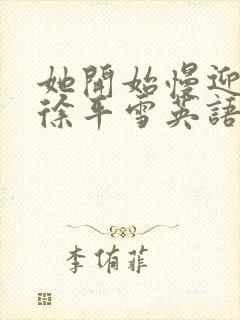 她開始慢迎
徐平雪英語
李侑菲